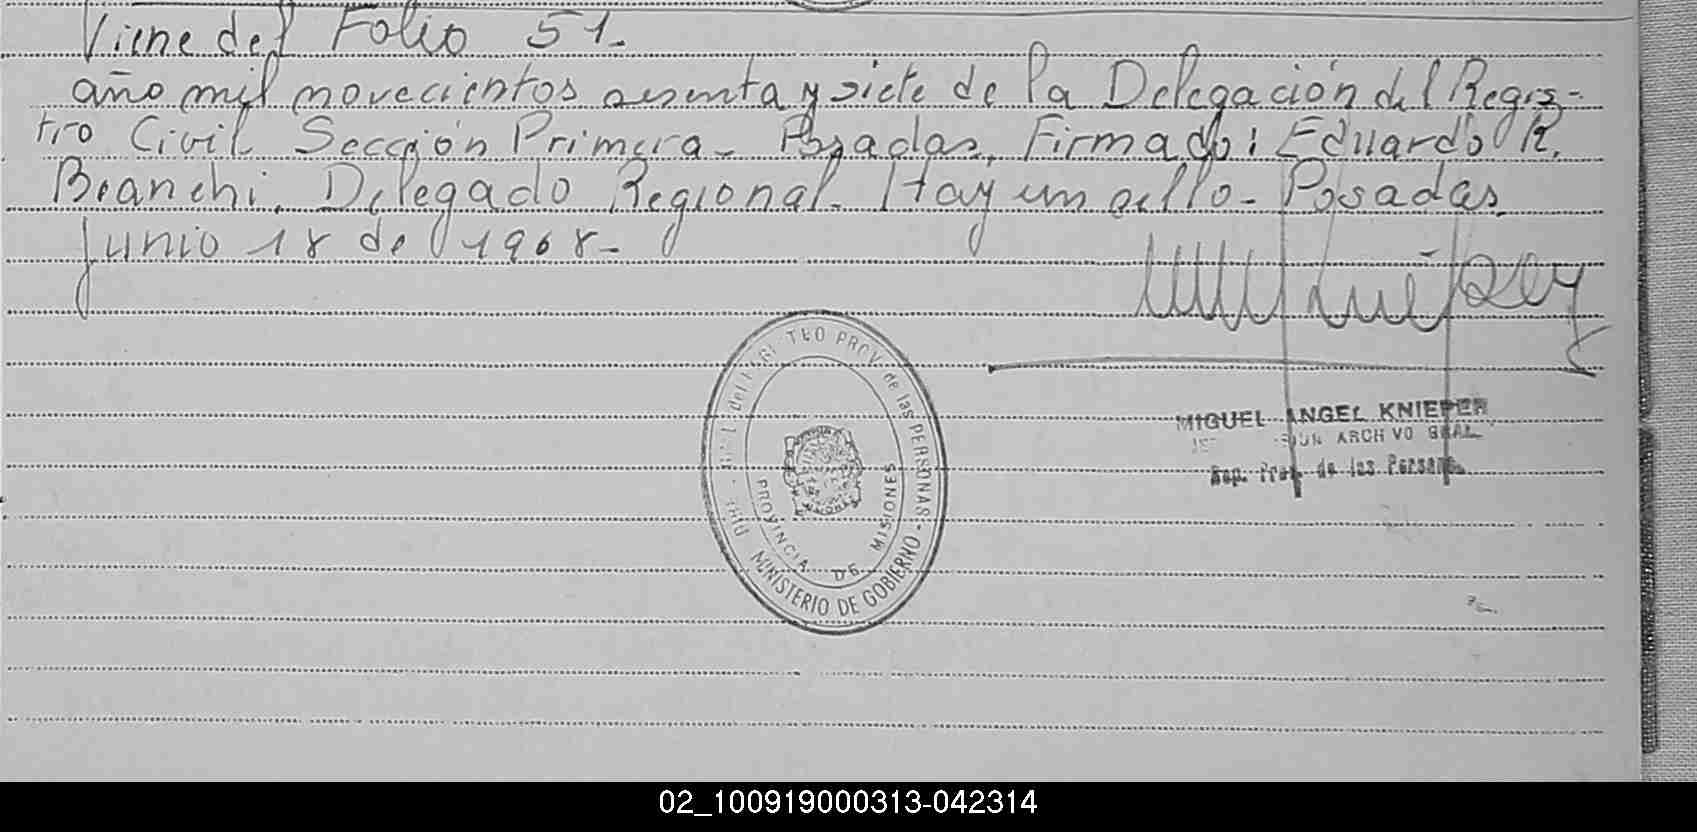 Viene del Folio 51.
año mil novecientos sesenta y siete de la Delegación del Regis-
tro Civil Sección Primera- Posadas, Firmado: Eduardo R.
Bianchi. Delegado Regional. Hay un sello- Posadas
Junio 18 de 1968.-
PROV. de las PERSONAS - MINISTERIO DE GOBIERNO
PROVINCIA DE MISIONES
MIGUEL ANGEL KNIEPER
ARCHIVO GRAL
de las Person
02_100919000313-042314